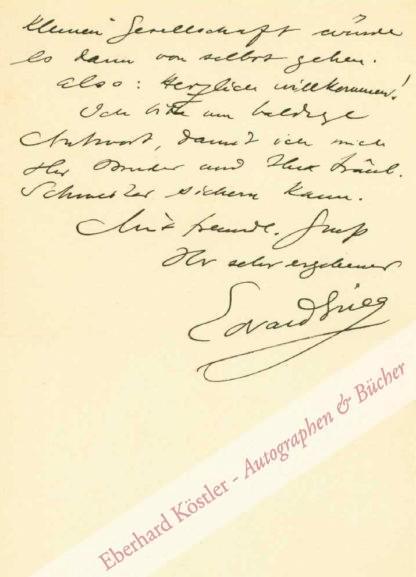 kleinen Gesellschaft würde
es dann von selbst gehen.
Also: Herzlich willkommen!
Ich bitte um baldige
Antwort, damit ich mich
Ihr Bruder und Ihre Fräul.
Schwester sichern kann.
Mit freundl. Gruß
Ihr sehr ergebener
Edvard Grieg
Eberhard Köstler - Autographen & Bücher